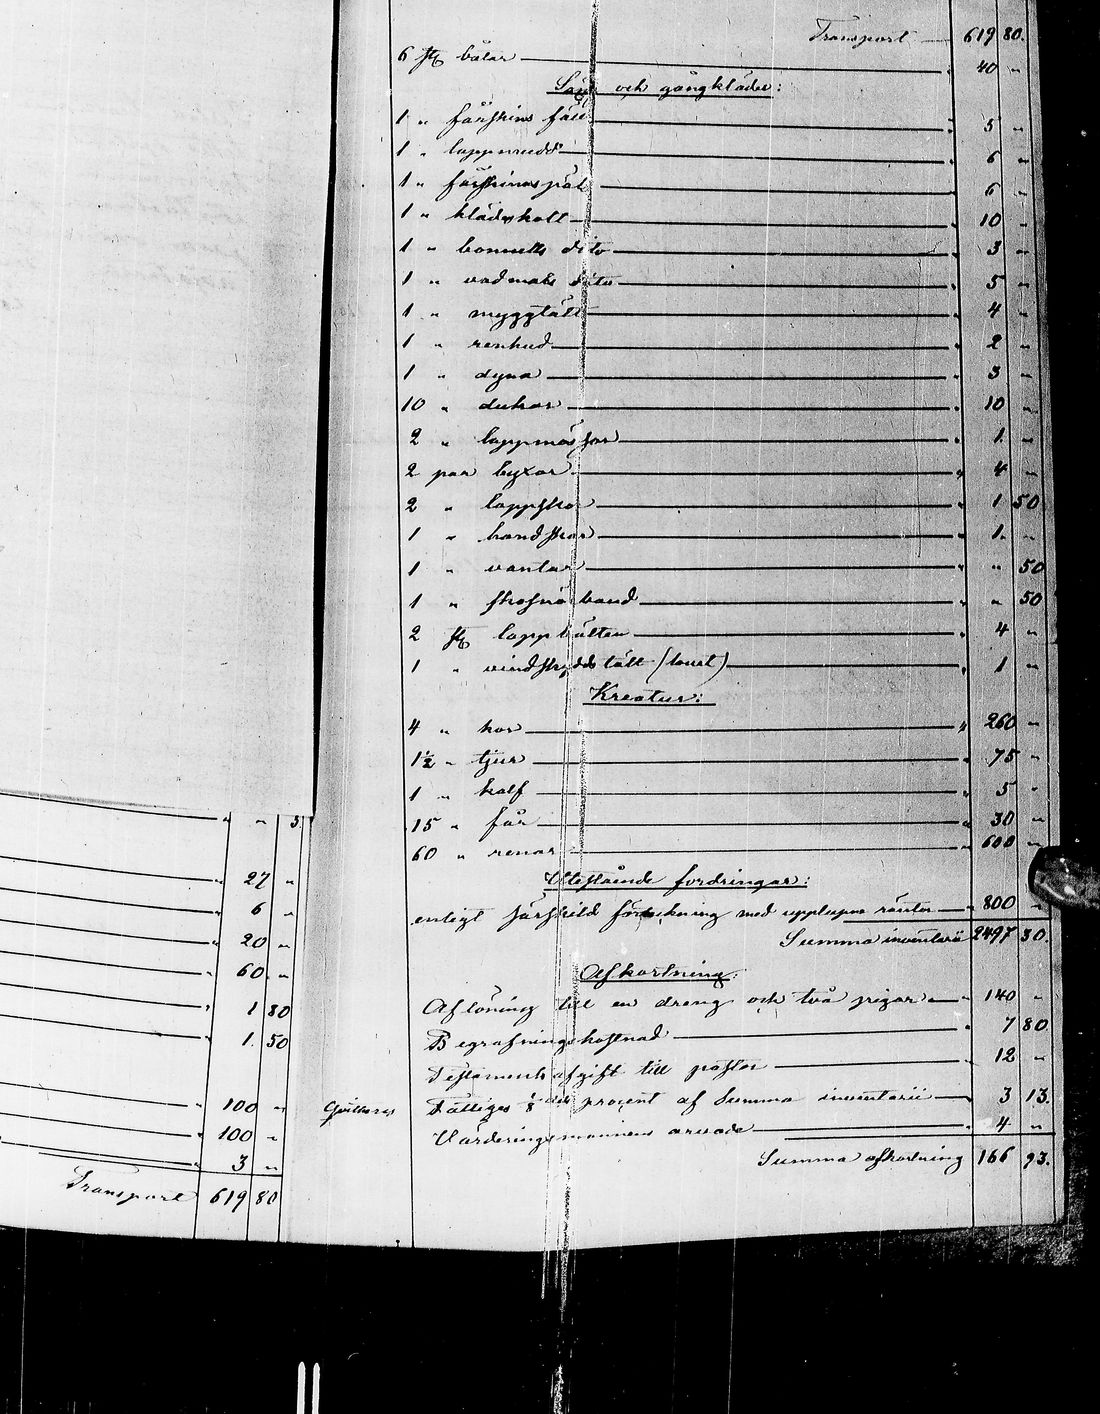 " 3.
" 27 "
" 6 "
" 20 "
" 60. "
" 1 80
" 1. 50
" 100 "
" 100 "
" 3 "
Transport 619 80
Transport 619 80.
6 st båtar " 40 "
Säng och gångkläder:
1 " fårskins fäll " 5 "
1 " lappmudd " 6 "
1 " fårskinnspäls " 6 "
1 " klädeskolt " 10 "
1 " bomulls dito " 3 "
1 " vadmals dito " 5 "
1 " myggtält " 4 "
1 " renhud " 2 "
1 " dyna " 3 "
10 " dukar " 10 "
2 " lappmössor " 1. "
2 par byxor " 4 "
2 " lappskor " 1 50
1 " handskar " 1. "
1 " vantar " " 50
1 " skosnörband " " 50
2 st lappbälten " 4 "
1 " vindskyddstält (loust) " 1 "
Kreatur:
4 " kor " 260 "
1½ " tjur " 75 "
1 " kalf " 5 "
15 " får " 30 "
60 " renar " 600 "
Utestående fordringar:
enligt särskild förteckning med upplupna räntor " 800 "
Summa inventarii 2497 30.
Afkortning:
Aflöning till en dreng och två pigor " 140 "
Begrafningskostnad " 7 80.
Testamentsafgift till pastor " 12 "
Fattiges 1/8 dels procent af Summa inventarii " 3 13.
Värderingsmannens arvode " 4 "
Summa afkortning 166 93.